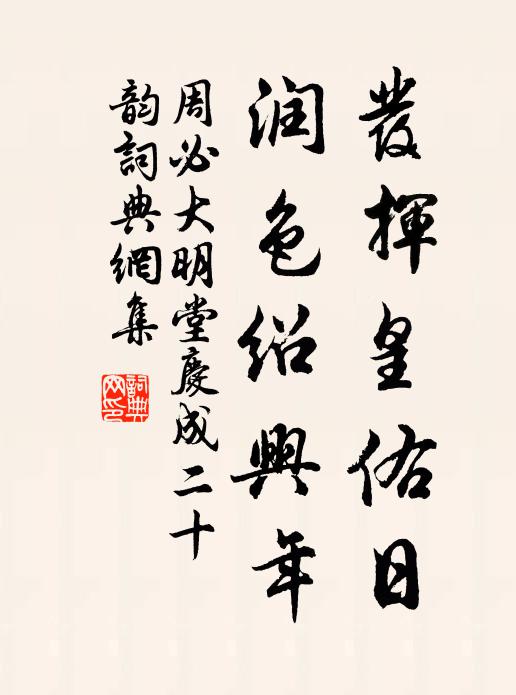 發揮皇佑日
润色绍興年
周必大明堂慶成二十
韵詞典網集
詞典
网印